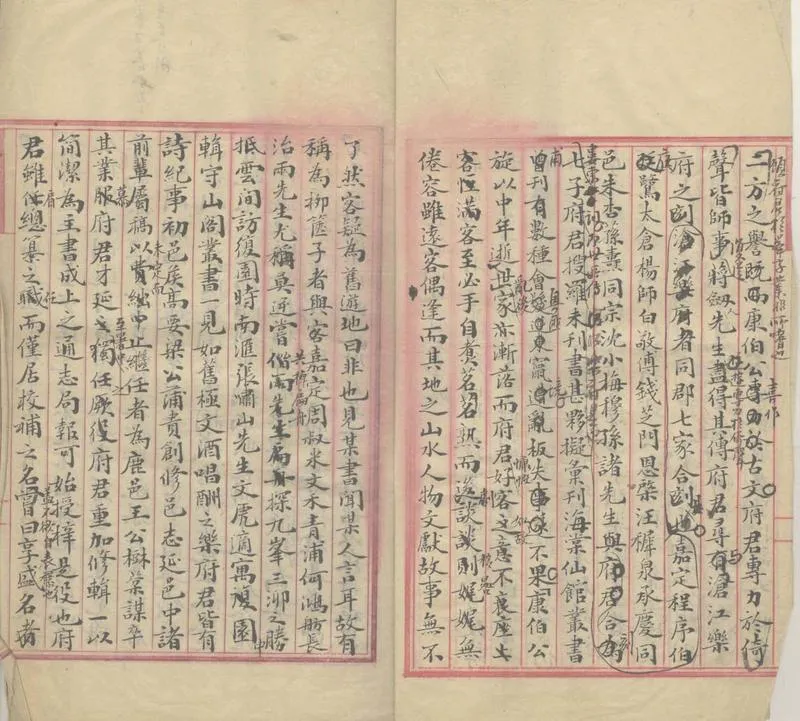 二方之譽既而康伯公專力於古文府君專力於倚
聲皆師事蔣劍人先生盡得其傳府君尋有滄江樂
府之刻滄江樂府者同郡七家合刻也嘉定程序伯
庭鷺太倉楊師白敬傅錢芝門恩棨汪樨泉承慶同
邑朱杏孫燾同宗沈小梅穆孫諸先生與府君合為
七子府君搜羅未刊書甚夥擬彙刊海棠仙館叢書
曾刊有數種會髮逆東竄遭亂板失事遂不果康伯公
旋以中年逝世家亦漸落而府君好客之意不衰座上
客恆滿客至必手自煮茗茗熟而送談談則娓娓無
倦容雖遠客偶逢而其地之山水人物文獻故事無不
了然客疑為舊遊地曰非也見某書聞某人言耳故有
稱為柳篋子者與客嘉定周叔米文禾青浦何鴻舫長
治兩先生尤稱莫逆嘗偕兩先生扁舟探九峯三泖之勝
抵雲間訪復園時南滙張嘯山先生文虎適寓復園
輯守山閣叢書一見如舊極文酒唱酬之樂府君皆有
詩紀事初邑矦高要梁公蒲貴創修邑志延邑中諸
前輩屬稿以費絀中止繼任者為鹿邑王公樹棻謀卒
其業慕府君才延之獨任厥役府君重加修輯一以
簡潔為主書成上之通志局報可始授梓是役也府
君雖任總纂之職而僅居校補之名嘗曰享盛名者